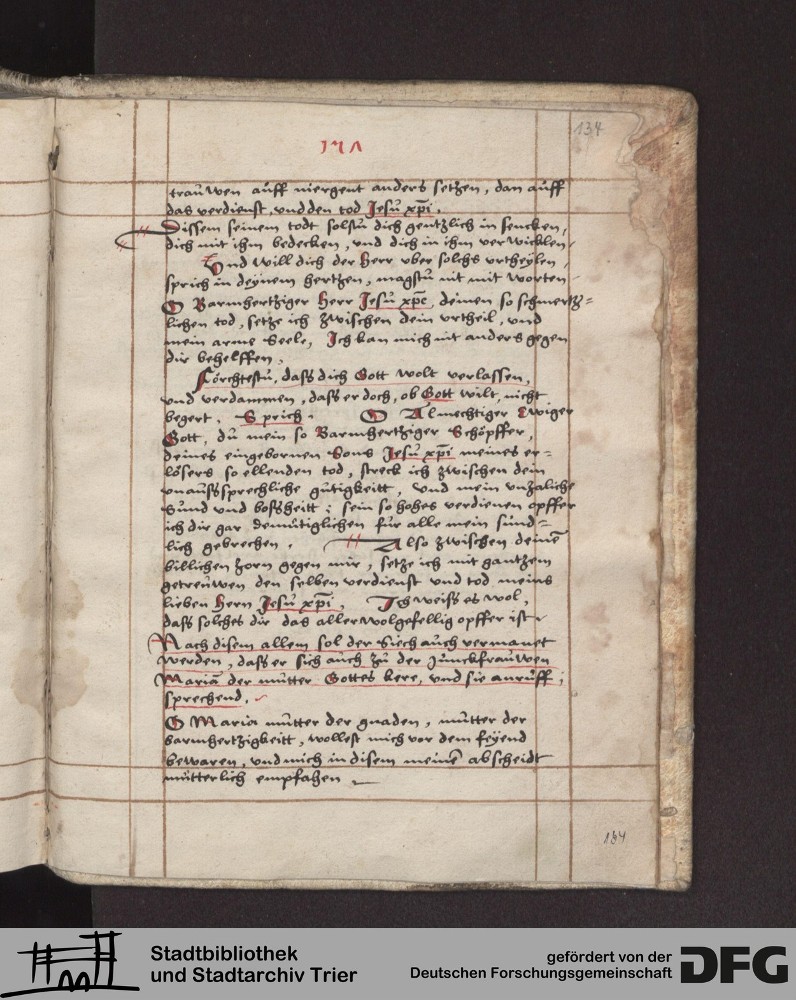 134
trauwen auff niergent anders setzen, dan auff
das verdienst, und den tod Jesu xp̄i.
Dissem seinem todt solstu dich gentzlich in sencken,
dich mit ihm bedecken, und dich in ihm verwicklen,
Und will dich der Herr uber solchs urtheylen,
sprich in deynem hertzen, magstu nit mit worten
O Barmhertziger Herr Jesu xp̄e, deinen so schmertz=
lichen tod, setze ich zwischen dein urtheil, und
mein arme Seele, Ich kan mich nit anders gegen
dir behelffen,
Förchtestu, dass dich Gott wolt verlassen,
und verdammen, dass er doch, ob Gott wilt, nicht
begert. Sprich. O Almechtiger Ewiger
Gott, du mein so Barmhertziger Schöpffer,
deines eingebornen Sons Jesu xp̄i meines er=
lösers so ellenden tod, streck ich zwischen dein
unaussprechliche gütigkeitt, und mein unzaliche
Sund und bossheitt: sein so hohes verdienen opffer
ich dir gar demütiglichen für alle mein sünd=
lich gebrechen. Also zwischen deinē
billichen zorn gegen mir, setze ich mit gantzem
getreuwen den selben verdienst und tod meins
lieben Hern Jesu xp̄i, Ich weiss es wol,
dass solches dir das allerwolgefellig opffer ist.
Nach disem allem sol der Siech auch vermanet
werden, dass er sich auch zu der Junckfrauwen
Mariā der mutter Gottes kere, und sie anruff,
sprechend.
O Maria mutter der gnaden, mutter der
barmhertzigkeitt, wollest mich vor dem feyend
bewaren, und mich in disem meinē abscheidt
mütterlich empfahen
134
Stadtbibliothek
und Stadtarchiv Trier
gefördert von der
Deutschen Forschungsgemeinschaft
DFG